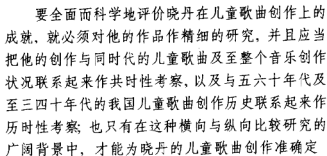 要全面而科学地评价晓丹在儿童歌曲创作上的
成就，就必须对他的作品作精细的研究，并且应当
把他的创作与同时代的儿童歌曲及至整个音乐创作
状况联系起来作共时性考察，以及与五六十年代及
至三四十年代的我国儿童歌曲创作历史联系起来作
历时性考察；也只有在这种横向与纵向比较研究的
广阔背景中，才能为晓丹的儿童歌曲创作准确定